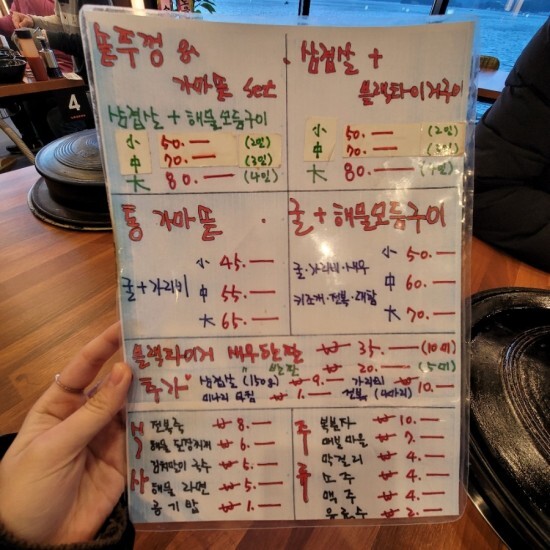 솥뚜껑 &
가마솥 set
삼겹살 + 해물모듬구이
小 50.— (2인)
中 70.— (3인)
大 80.— (4인)
삼겹살 +
블랙타이거구이
小 50.— (2인)
中 70.— (3인)
大 80.— (4인)
통 가마솥
굴+가리비
小 45.—
中 55.—
大 65.—
굴 + 해물모듬구이
굴·가리비·새우
키조개·전복·대합
小 50.—
中 60.—
大 70.—
블랙타이거 새우한판 ₩ 35.— (10미)
" 반판 ₩ 20.— (5미)
"추가" 삼겹살 (150g) ₩ 9.— 가리비 ₩ 10.—
미나리 무침 ₩ 1.— 전복
식사
전복죽 ₩ 8.—
해물 된장찌개 ₩ 6.—
김치말이 국수 ₩ 5.—
해물 라면 ₩ 5.—
공기밥 ₩ 1.—
주류
복분자 ₩ 10.—
매실마을 ₩ 7.—
막걸리 ₩ 4.—
소주 ₩ 4.—
맥주 ₩ 4.—
음료수 ₩ 2.—
4